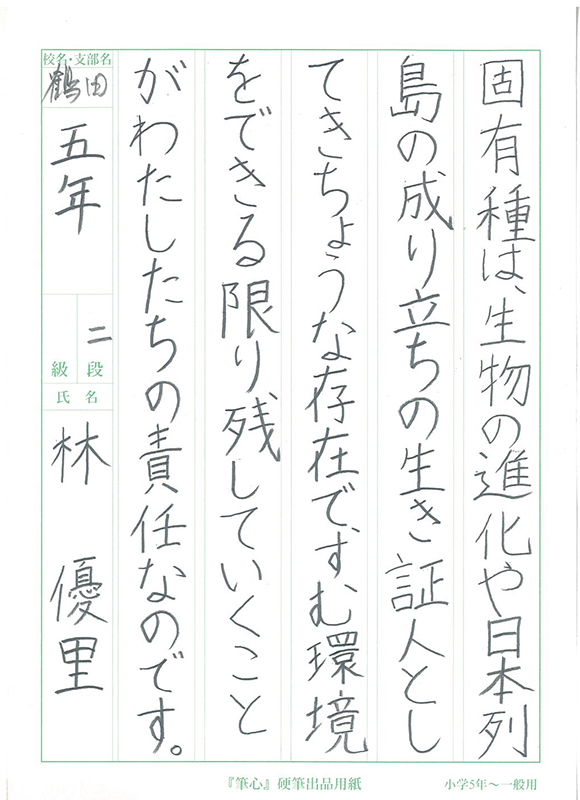 固有種は、生物の進化や日本列
島の成り立ちの生き証人とし
てきちょうな存在で、すむ環境
をできる限り残していくこと
がわたしたちの責任なのです。
校名・支部名
鶴田
五年
二
段
級
氏名
林 優里
『筆心』硬筆出品用紙
小学5年〜一般用